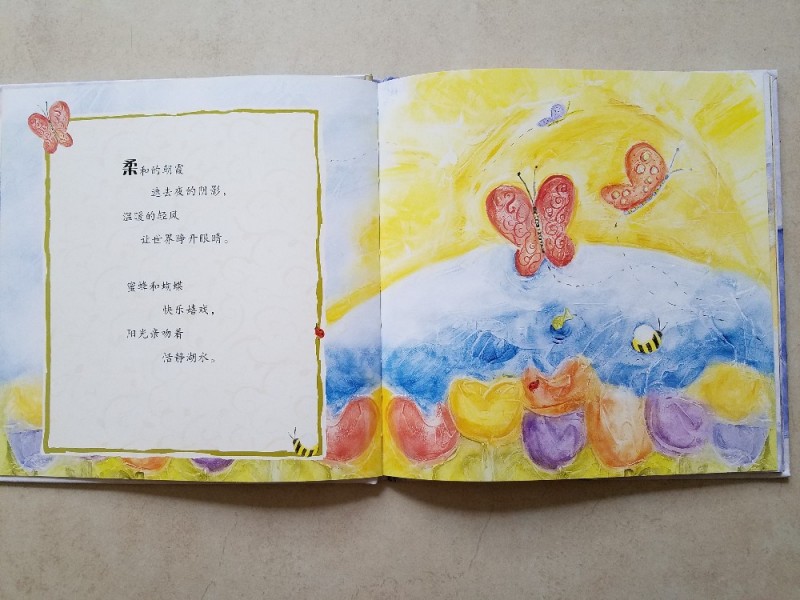 柔和的朝霞
逃去夜的阴影，
温暖的轻风
让世界睁开眼睛。
蜜蜂和蝴蝶
快乐嬉戏，
阳光亲吻着
恬静湖水。